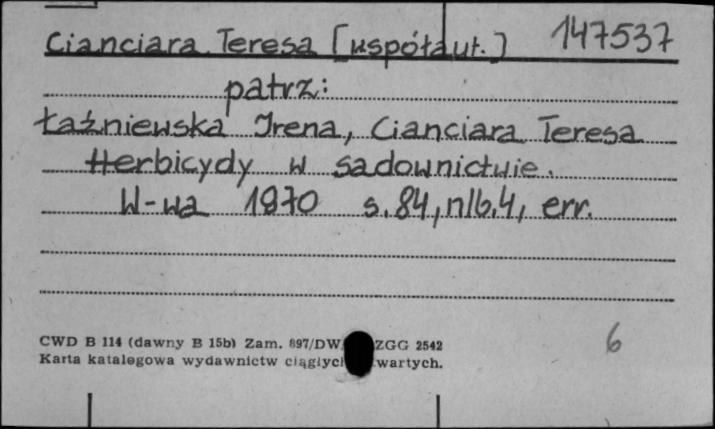 Cianciara Teresa [współaut.] 147537
patrz:
Łaźniewska Irena, Cianciara Teresa
Herbicydy w sadownictwie.
W-wa 1970 s. 84, nlb. 4, err.
CWD B 114 (dawny B 15b) Zam. 897/DW ZGG 2542
Karta katalogowa wydawnictw ciągłyc wartych.
6